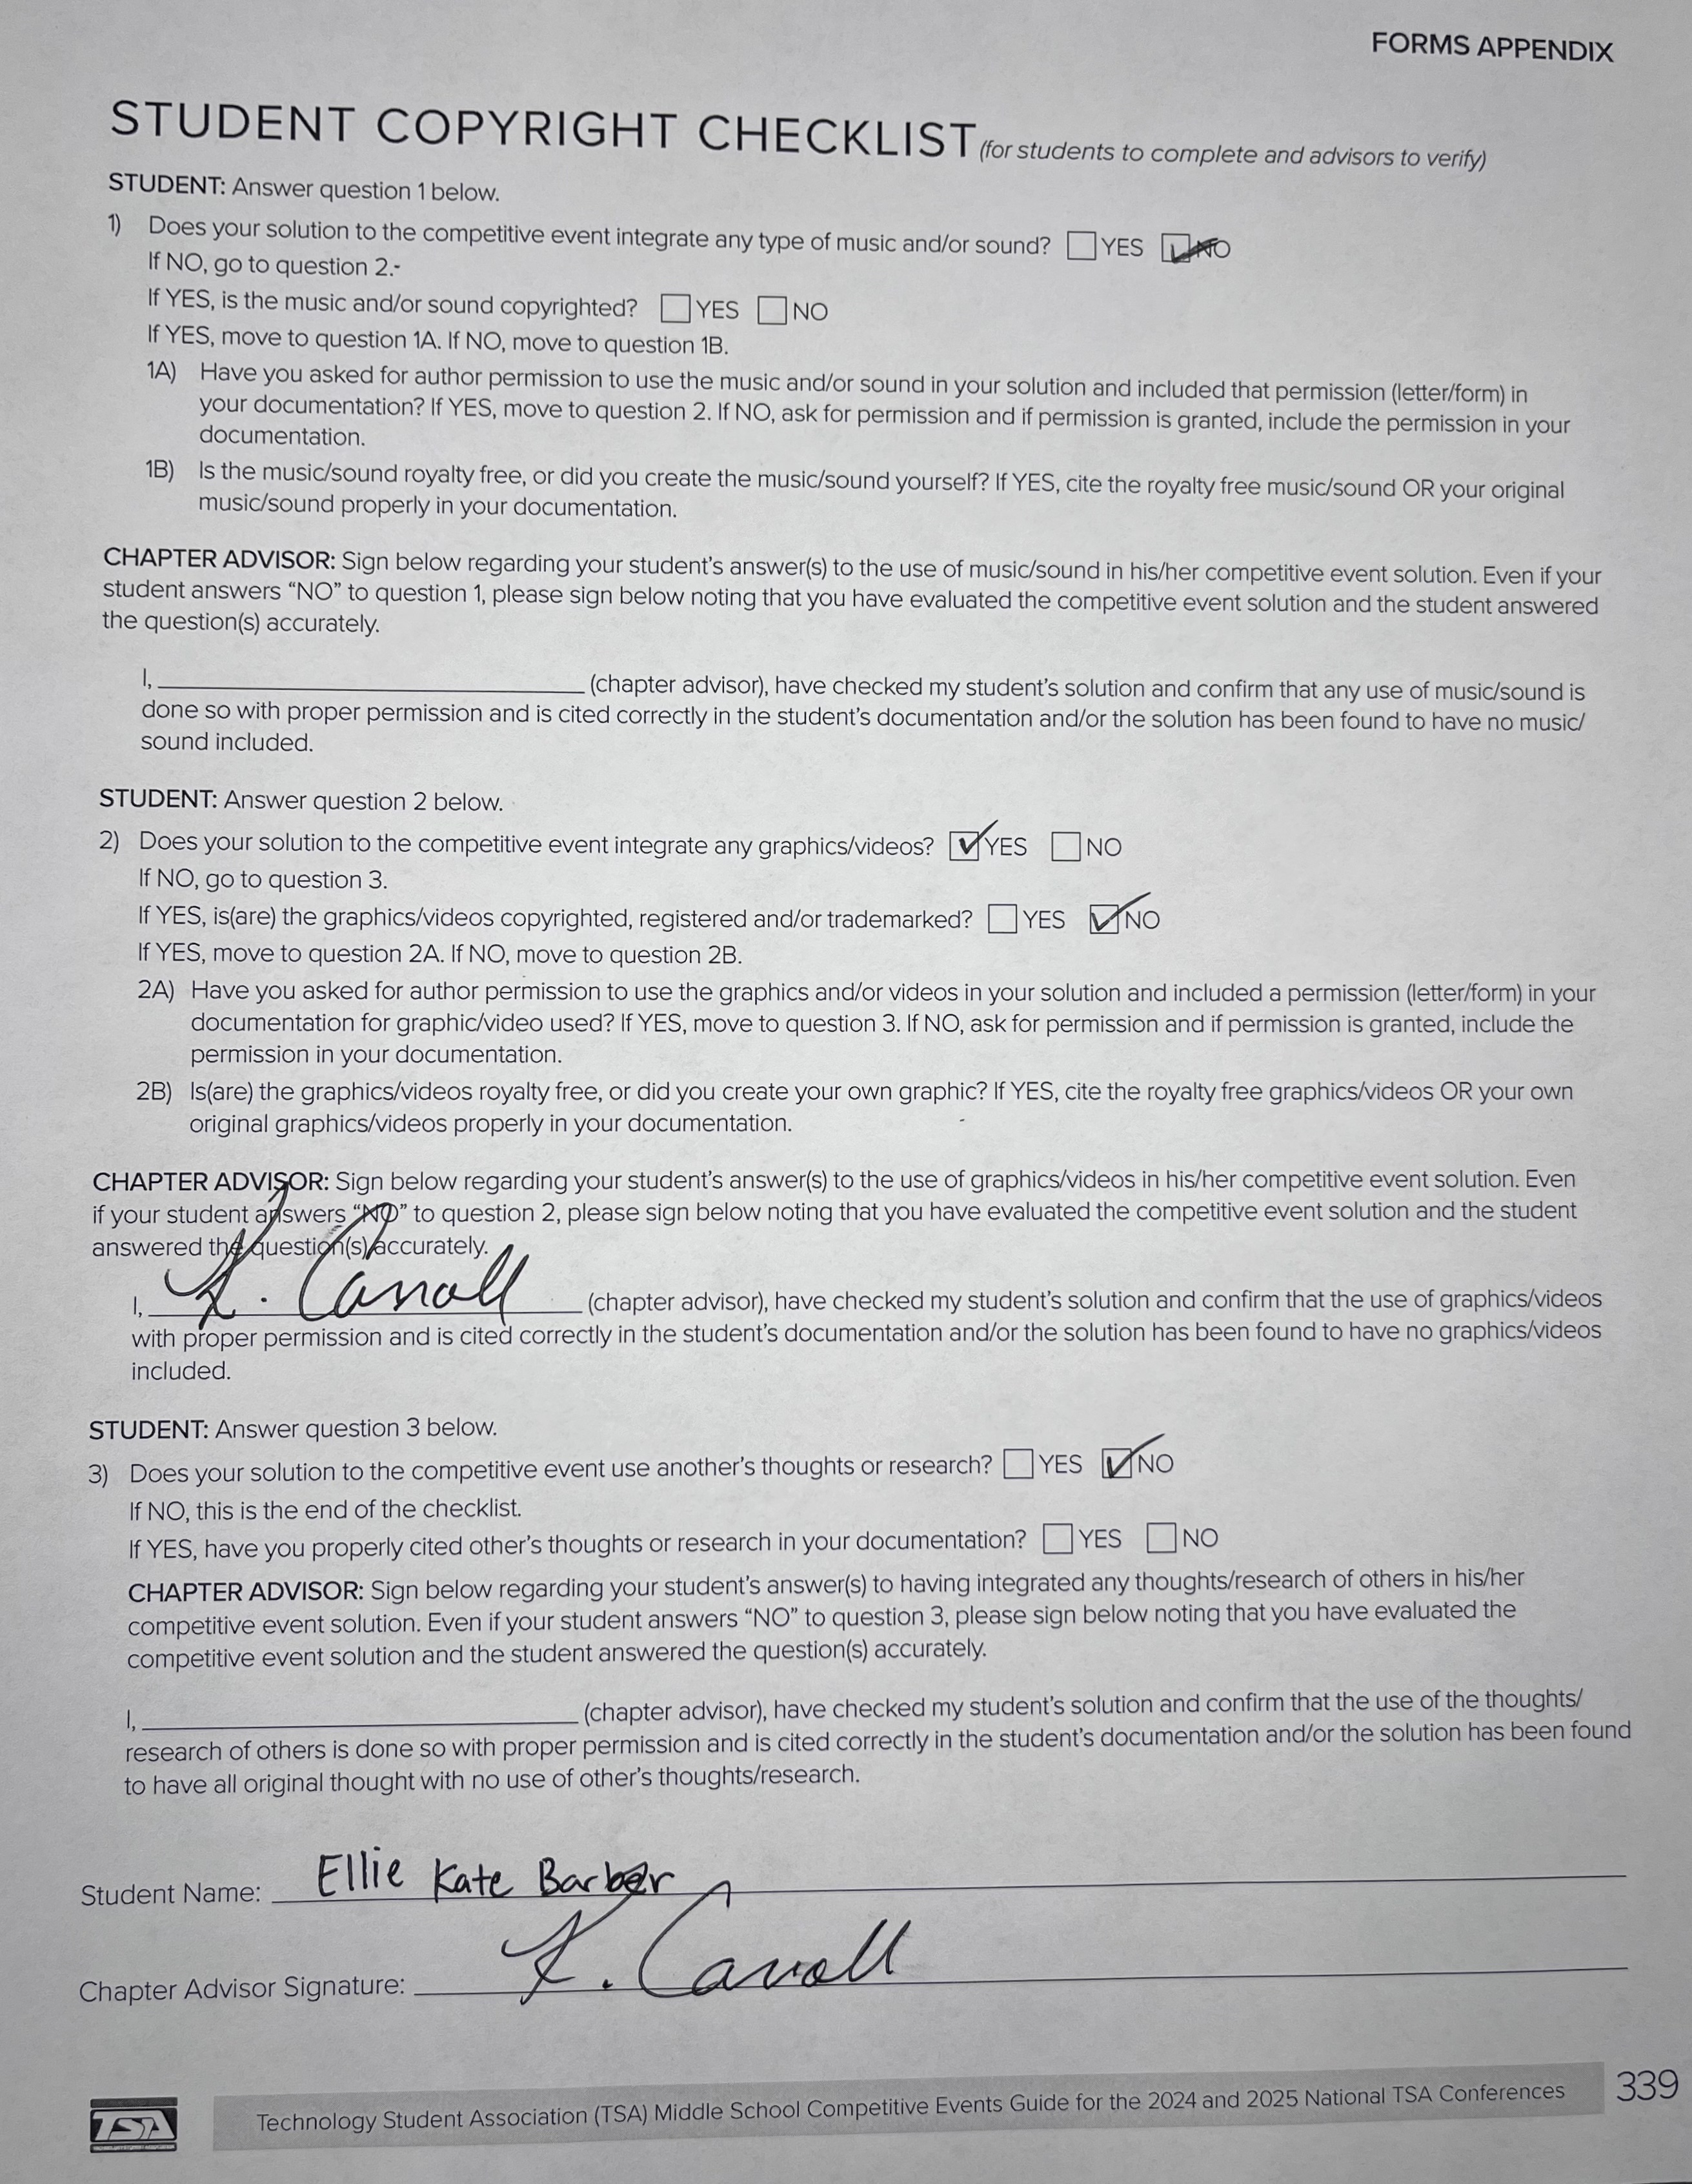 FORMS APPENDIX
STUDENT COPYRIGHT CHECKLIST (for students to complete and advisors to verify)
STUDENT: Answer question 1 below.
1) Does your solution to the competitive event integrate any type of music and/or sound? YES NO
If NO, go to question 2.-
If YES, is the music and/or sound copyrighted? YES NO
If YES, move to question 1A. If NO, move to question 1B.
1A) Have you asked for author permission to use the music and/or sound in your solution and included that permission (letter/form) in
your documentation? If YES, move to question 2. If NO, ask for permission and if permission is granted, include the permission in your
documentation.
1B) Is the music/sound royalty free, or did you create the music/sound yourself? If YES, cite the royalty free music/sound OR your original
music/sound properly in your documentation.
CHAPTER ADVISOR: Sign below regarding your student's answer(s) to the use of music/sound in his/her competitive event solution. Even if your
student answers “NO” to question 1, please sign below noting that you have evaluated the competitive event solution and the student answered
the question(s) accurately.
I, (chapter advisor), have checked my student's solution and confirm that any use of music/sound is
done so with proper permission and is cited correctly in the student's documentation and/or the solution has been found to have no music/
sound included.
STUDENT: Answer question 2 below.
2) Does your solution to the competitive event integrate any graphics/videos? YES NO
If NO, go to question 3.
If YES, is(are) the graphics/videos copyrighted, registered and/or trademarked? YES NO
If YES, move to question 2A. If NO, move to question 2B.
2A) Have you asked for author permission to use the graphics and/or videos in your solution and included a permission (letter/form) in your
documentation for graphic/video used? If YES, move to question 3. If NO, ask for permission and if permission is granted, include the
permission in your documentation.
2B) Is(are) the graphics/videos royalty free, or did you create your own graphic? If YES, cite the royalty free graphics/videos OR your own
original graphics/videos properly in your documentation.
CHAPTER ADVISOR: Sign below regarding your student's answer(s) to the use of graphics/videos in his/her competitive event solution. Even
if your student answers “NO” to question 2, please sign below noting that you have evaluated the competitive event solution and the student
answered the question(s) accurately.
I, K. Carroll (chapter advisor), have checked my student's solution and confirm that the use of graphics/videos
with proper permission and is cited correctly in the student's documentation and/or the solution has been found to have no graphics/videos
included.
STUDENT: Answer question 3 below.
3) Does your solution to the competitive event use another's thoughts or research? YES NO
If NO, this is the end of the checklist.
If YES, have you properly cited other's thoughts or research in your documentation? YES NO
CHAPTER ADVISOR: Sign below regarding your student's answer(s) to having integrated any thoughts/research of others in his/her
competitive event solution. Even if your student answers “NO” to question 3, please sign below noting that you have evaluated the
competitive event solution and the student answered the question(s) accurately.
I, (chapter advisor), have checked my student's solution and confirm that the use of the thoughts/
research of others is done so with proper permission and is cited correctly in the student's documentation and/or the solution has been found
to have all original thought with no use of other's thoughts/research.
Student Name: Ellie Kate Barber
Chapter Advisor Signature: K. Carroll
TSA Technology Student Association (TSA) Middle School Competitive Events Guide for the 2024 and 2025 National TSA Conferences 339